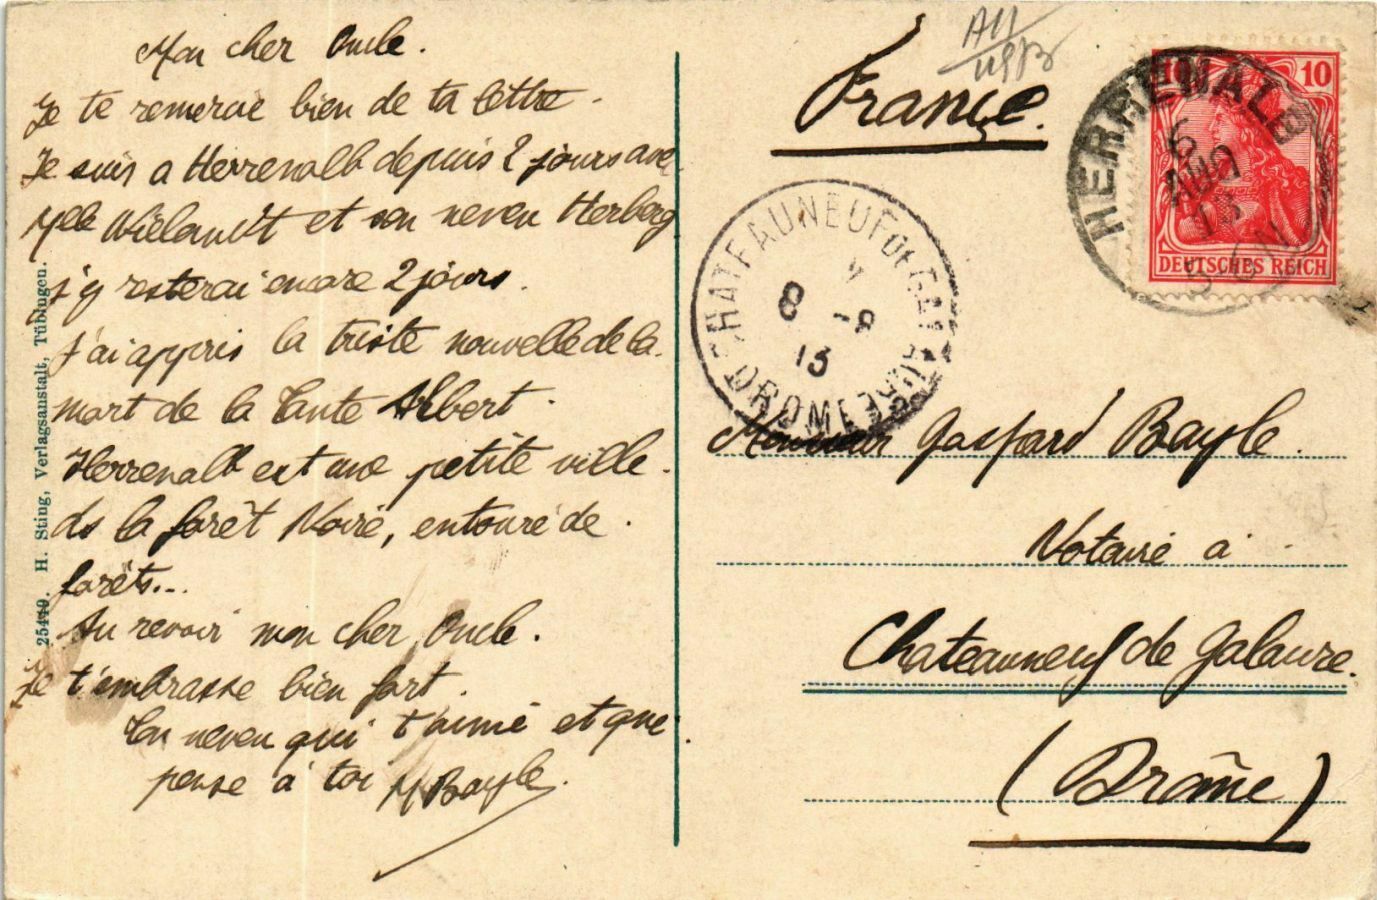 Mon cher Oncle.
Je te remercie bien de ta lettre.
Je suis a Herrenalb depuis 2 jours avec
Mlle Wiélandt et son neveu Herberg
j'y resterai encore 2 jours.
J'ai appris la triste nouvelle de la
mort de la Tante Albert.
Herrenalb est une petite ville
de la forêt Noire, entouré de
forêts...
Au revoir mon cher Oncle.
Je t'embrasse bien fort.
Ton neveu qui t'aime et que
pense à toi M Bayle.
25449. H. Sting, Verlagsanstalt, Tübingen.
France.
HERRENALB
6
AUG
13
10
DEUTSCHES REICH
CHATEAUNEUF DE GALAURE
8 -8
13
DROME
Monsieur Gaspard Bayle.
Notaire à
Chateauneuf de Galaure.
(Drôme)